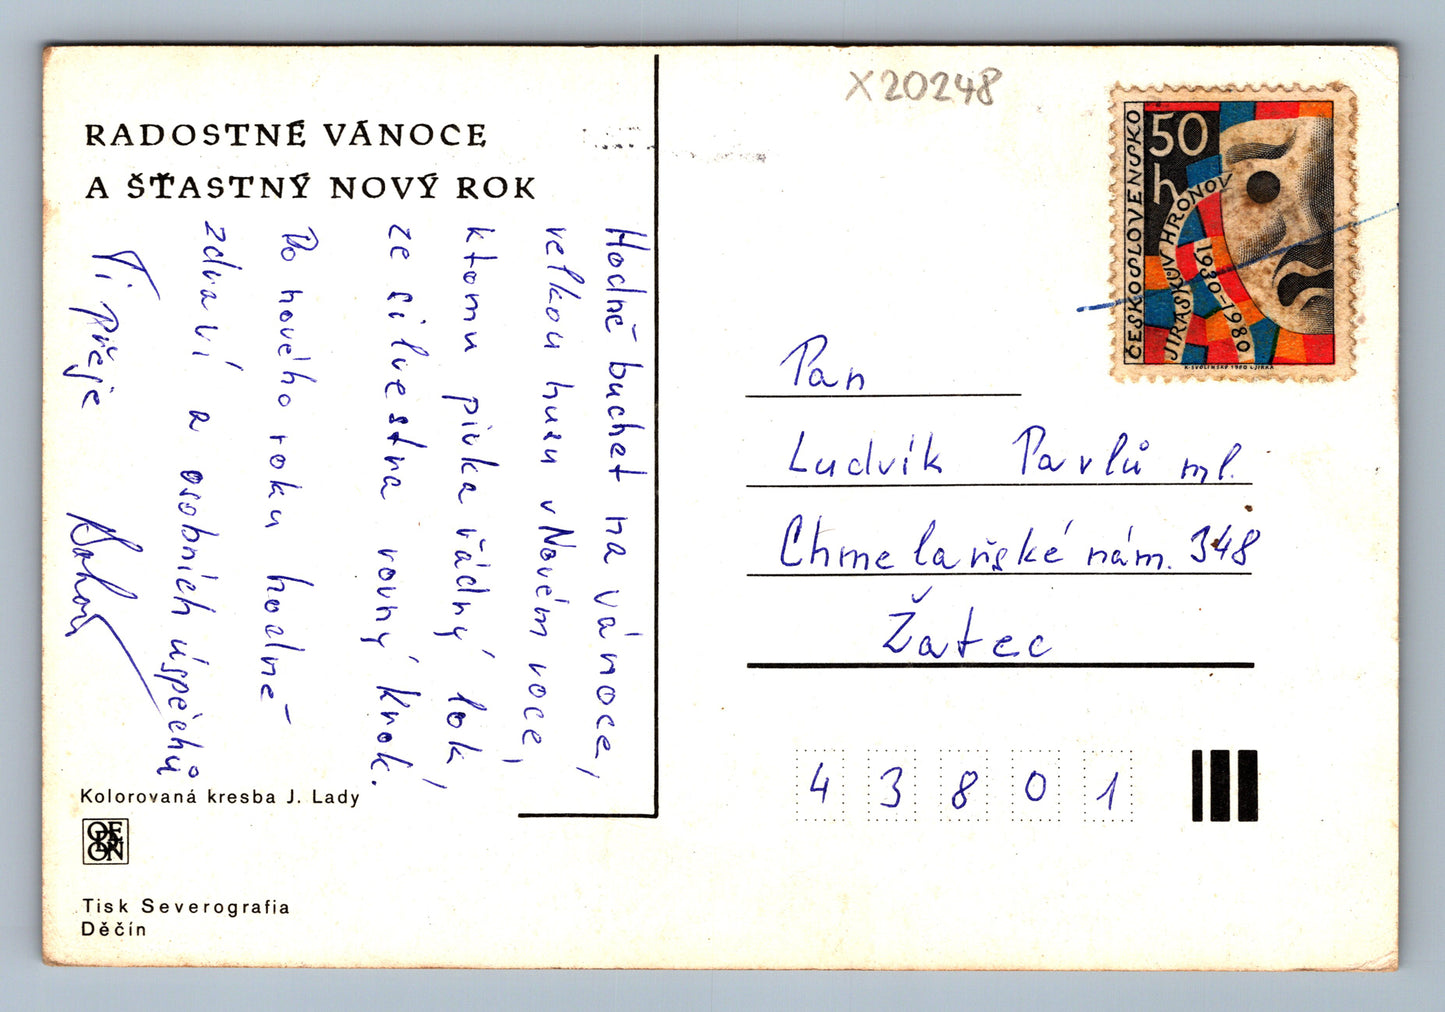 X20248
RADOSTNÉ VÁNOCE
A ŠŤASTNÝ NOVÝ ROK
Hodně buchet na vánoce,
velkou husu v Novém roce,
ktomu pivka řádný lok,
ze silvestra rovný krok.
Do nového roku hodně
zdraví a osobních úspěchů
Ti přeje
Kolorovaná kresba J. Lady
ODEON
Tisk Severografia
Děčín
ČESKOSLOVENSKO
50
h
JIRÁSKŮV HRONOV
1930–1980
K. SVOLINSKÝ 1980 L. JIRKA
Pan
Ludvík Pavlů ml.
Chmelařské nám. 348
Žatec
43801